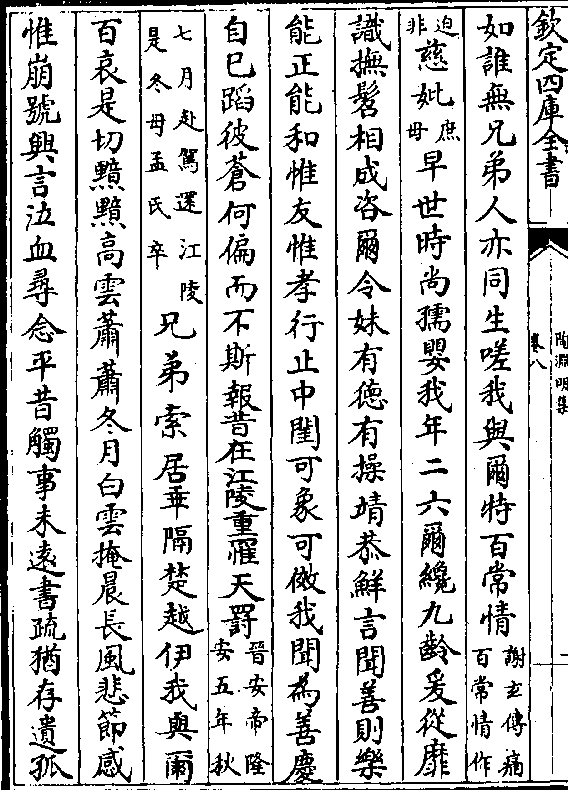 欽定四庫全書
陶淵明集
卷八
如誰無兄弟人亦同生嗟我與爾特百常情謝玄傳痛百常情作
迫非慈妣庶母早世時尚孺嬰我年二六爾纔九齡爰從靡
識撫髫相成咨爾令妹有德有操靖恭鮮言聞善則樂
能正能和惟友惟孝行止中閨可象可傚我聞為善慶
自已蹈彼蒼何偏而不斯報昔在江陵重罹天罰晉安帝隆安五年秋
七月赴駕還江陵是冬母孟氏卒兄弟索居乖隔楚越伊我與爾
百哀是切黯黯高雲蕭蕭冬月白雲掩晨長風悲節感
惟崩號興言泣血尋念平昔觸事未遠書疏猶存遺孤